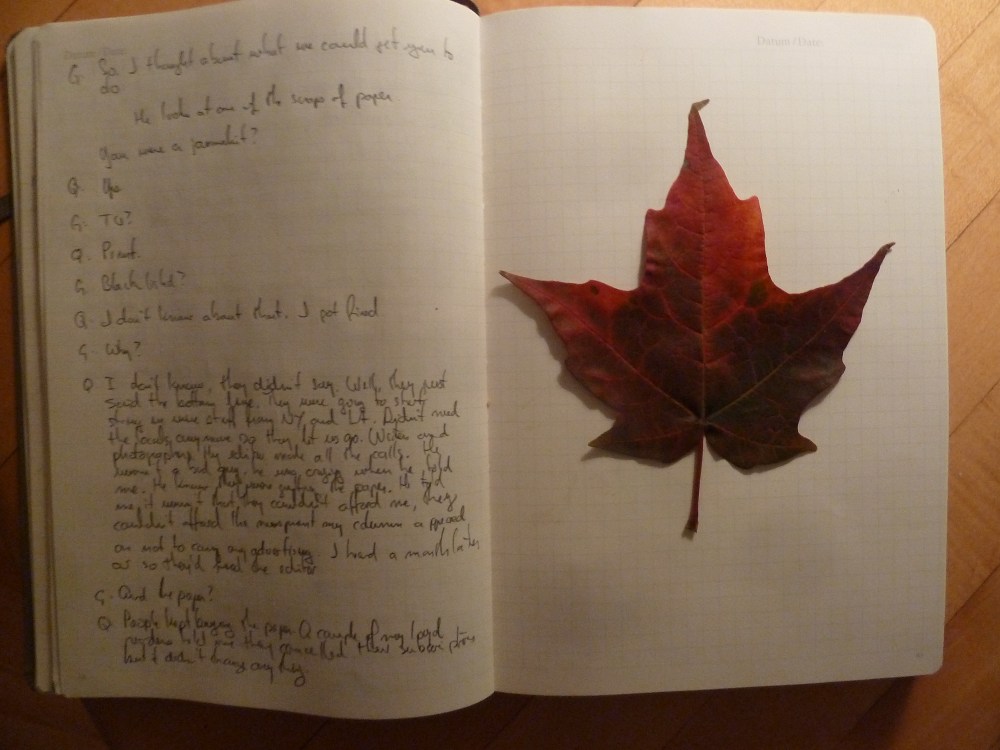 Datum/Date
G. So I thought about what we could get you to
do
He looks at one of the scraps of paper
You were a journalist?
Q. Yes
G. TV?
Q. Print.
G.
Q. I don't know about that. I got fired
G. Why?
Q I don't know, they didn't say. Well, they just
said the bottom line. They were going to start
in more stuff from NY and LA. Didn't need
the locals anymore so they let us go. Writers and
photographers. The editor made all the calls. He
wasn't a bad guy, he was crying when he told
me. He knew they were the paper. He told
me it wasn't that they couldn't afford me, they
couldn't afford the my column a
or not to carry any advertising. I heard a month later
or so they'd fired the editor
G. And the paper?
Q. People kept buying the paper. A couple of my loyal
readers told me they cancelled their subscriptions
but it didn't change anything
Datum/Date